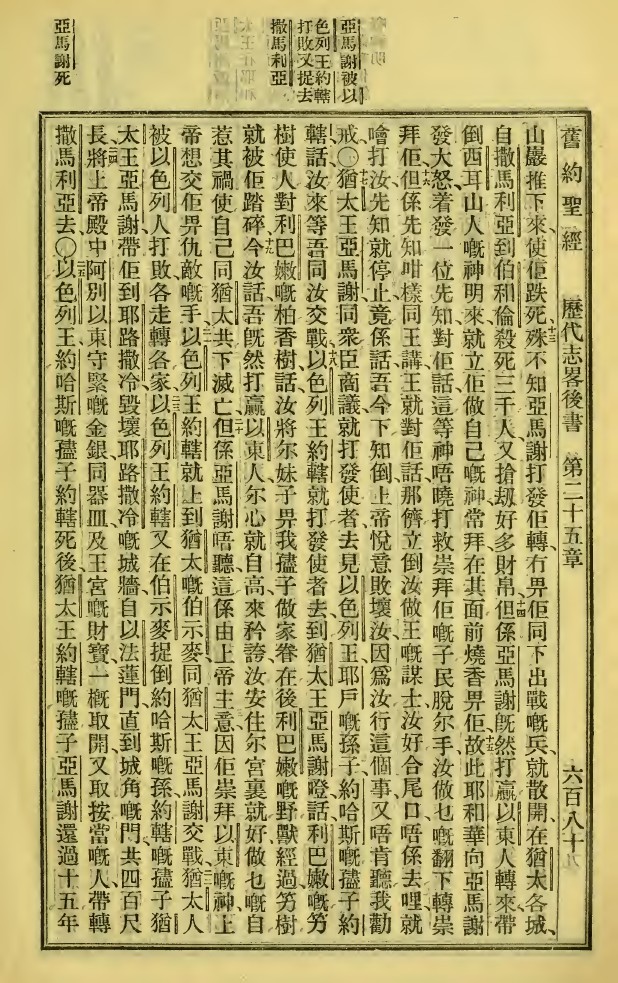 亞馬謝被以
色列王約轄
打敗又捉去
撒馬利亞
亞馬謝死
舊約聖經 歷代志畧後書 第二十五章 六百八十
山巖推下來、使佢跌死、殊不知亞馬謝打發佢轉、冇畀佢同下出戰嘅兵、就散開在猶太各城、
自撒馬利亞到伯和倫、殺死三千人、又搶刼好多財帛、但係亞馬謝既然打贏以東人轉來、帶
倒西耳山人嘅神明來、就立佢做自己嘅神、常拜在其面前、燒香畀佢、故此耶和華向亞馬謝
發大怒、着發一位先知、對佢話、這等神唔曉打救崇拜佢嘅子民脫尔手、汝做乜嘅翻下轉崇
拜佢、但係先知咁樣同王講、王就對佢話、那儕立倒汝做王嘅謀士、汝好合尾口、唔係去哩、就
噲打汝、先知就停止、竟係話、吾今下知倒上帝悅意敗壞汝、因爲汝行這個事、又唔肯聽我勸
戒、〇猶太王亞馬謝同衆臣商議、就打發使者去見以色列王耶戶嘅孫子約哈斯嘅孻子約
轄話、汝來等吾同汝交戰、以色列王約轄就打發使者去到猶太王亞馬謝噔話、利巴嫩嘅竻
樹、使人對利巴嫩嘅柏香樹話、汝將尔妹子畀我孻子做家眷、在後利巴嫩嘅野獸經過竻樹
就被佢踏碎、今汝話吾既然打贏以東人、尔心就自高來矜誇、汝安住尔宮裏就好、做乜嘅自
惹其禍、使自己同猶太共下滅亡、但係亞馬謝唔聽、這係由上帝主意、因佢崇拜以東嘅神、上
帝想交佢畀仇敵嘅手、以色列王約轄就上到猶太嘅伯示麥、同猶太王亞馬謝交戰、猶太人
被以色列人打敗、各走轉各家、以色列王約轄又在伯示麥捉倒約哈斯嘅孫約轄嘅孻子猶
太王亞馬謝、帶佢到耶路撒冷、毀壞耶路撒冷嘅城牆、自以法蓮門直到城角嘅門、共四百尺
長、將上帝殿中阿別以東守緊嘅金銀同器皿、及王宮嘅財寶、一概取開、又取按當嘅人帶轉
撒馬利亞去、〇以色列王約哈斯嘅孻子約轄死後、猶太王約轄嘅孻子亞馬謝、還過十五年